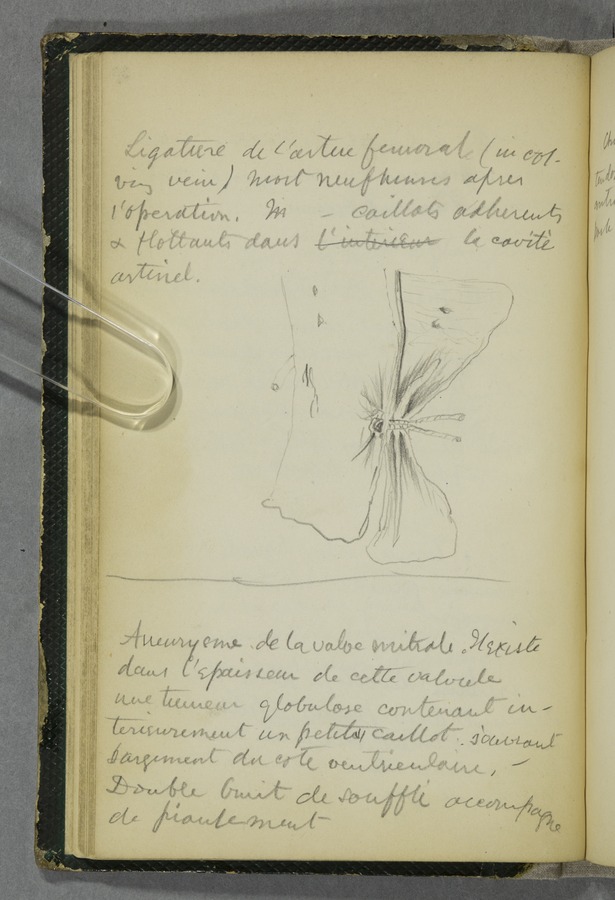 Ligature de l'artere femorale (in col-
vein) mort neuf heures apres
l'operation. M — caillots adherents
& flottants dans l'interieur la cavité
artiriel.
Aneurysme de la valve mitrale. Il existe
dans l'epaisseur de cette valvule
une tumeur globulose contenant in-
terieurement un petit caillot. s'ouvrant
largement du cote ventriculaire. —
Double bruit de soufflé accompagne
de piaulement